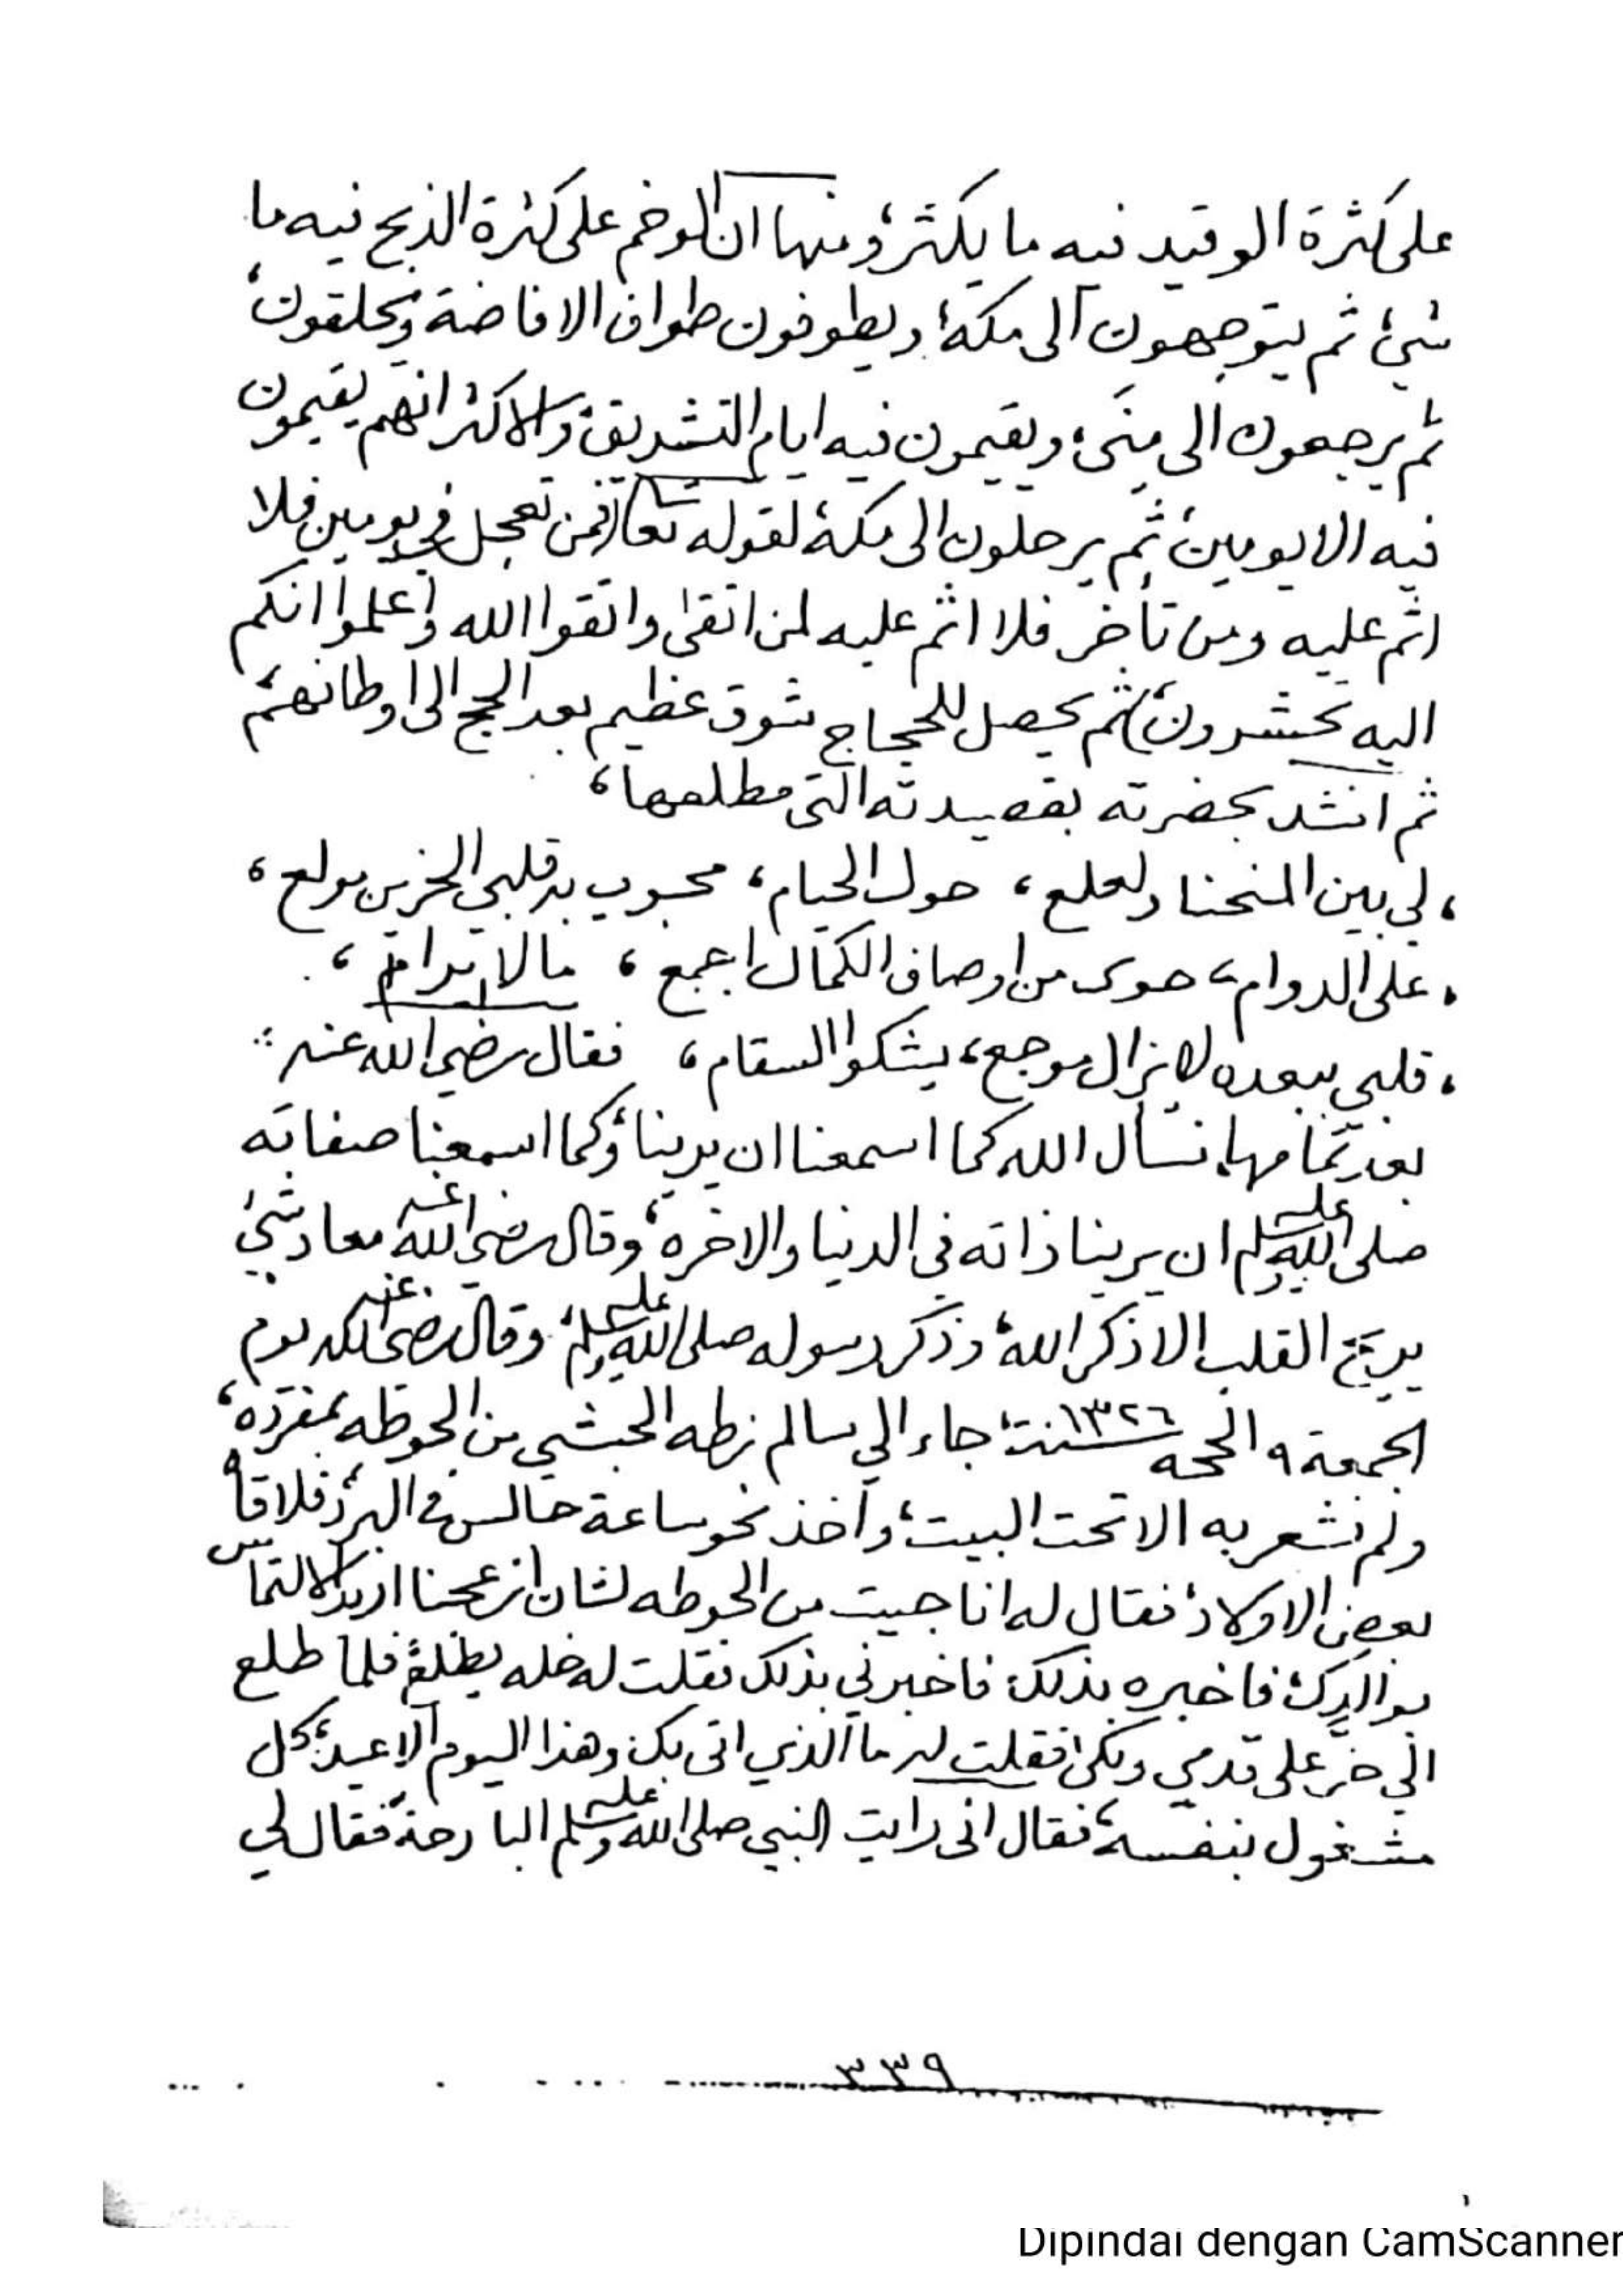 على كثرة الوقيد فيه ما يكثر، ومنها ان الوخم على كثرة الذبح فيه ما
شيئ ثم يتوجهون الى مكة، ويطوفون طواف الافاضة ويحلقون،
ثم يرجعون الى منى، ويقيمون فيه ايام التشريق، والاكثر انهم يقيمون
فيه الا يومين، ثم يرحلون الى مكة، لقوله تعالى (فمن تعجل في يومين فلا
اثم عليه ومن تأخر فلا اثم عليه لمن اتقى واتقوا الله واعلموا انكم
اليه تحشرون) ثم يحصل للحجاج شوق عظيم بعد الحج الى اوطانهم،
ثم انشد بحضرته بقصيدته التي مطلعها،
، لي بين المنحنا ولعلع، حول الخيام، محبوب به قلبي الحزين مولع،
، على الدوام، حوى من اوصاف الكمال اجمع، ما لا يرام،
، قلبي ببعده لا يزال موجع، يشكوا السقام، فقال رضي الله عنه :
بعد تمامها، نسأل الله كما اسمعنا ان يرينا، وكما اسمعنا صفاته
صلى الله عليه وسلم ان يرينا ذاته في الدنيا والاخره، وقال رضي الله عنه معاد شيئ
يريح القلب الا ذكر الله، وذكر رسوله صلى الله عليه وسلم، وقال رضي الله عنه يوم
الجمعة ٩ الحجه ١٣٢٦سنة، جاء الي سالم بن طه الحبشي من الحوطه بمفرده،
ولم نشعر به الا تحت البيت، وأخذ نحو ساعة جالس في البرد، فلاقاه
بعض الاولاد، فقال له انا جيت من الحوطه لشان ازعجنا اريد الالتماس
بوالدك، فاخبره بذلك، فاخبرني بذلك فقلت له خله يطلع، فلما طلع
الي خر على قدمي وبكى، فقلت له ما الذي اتى بك، وهذا اليوم الا عيد، كل
مشغول بنفسه، فقال اني رايت النبي صلى الله عليه وسلم البارحة، فقال لي
٣٣٩
Dipindai dengan CamScanner